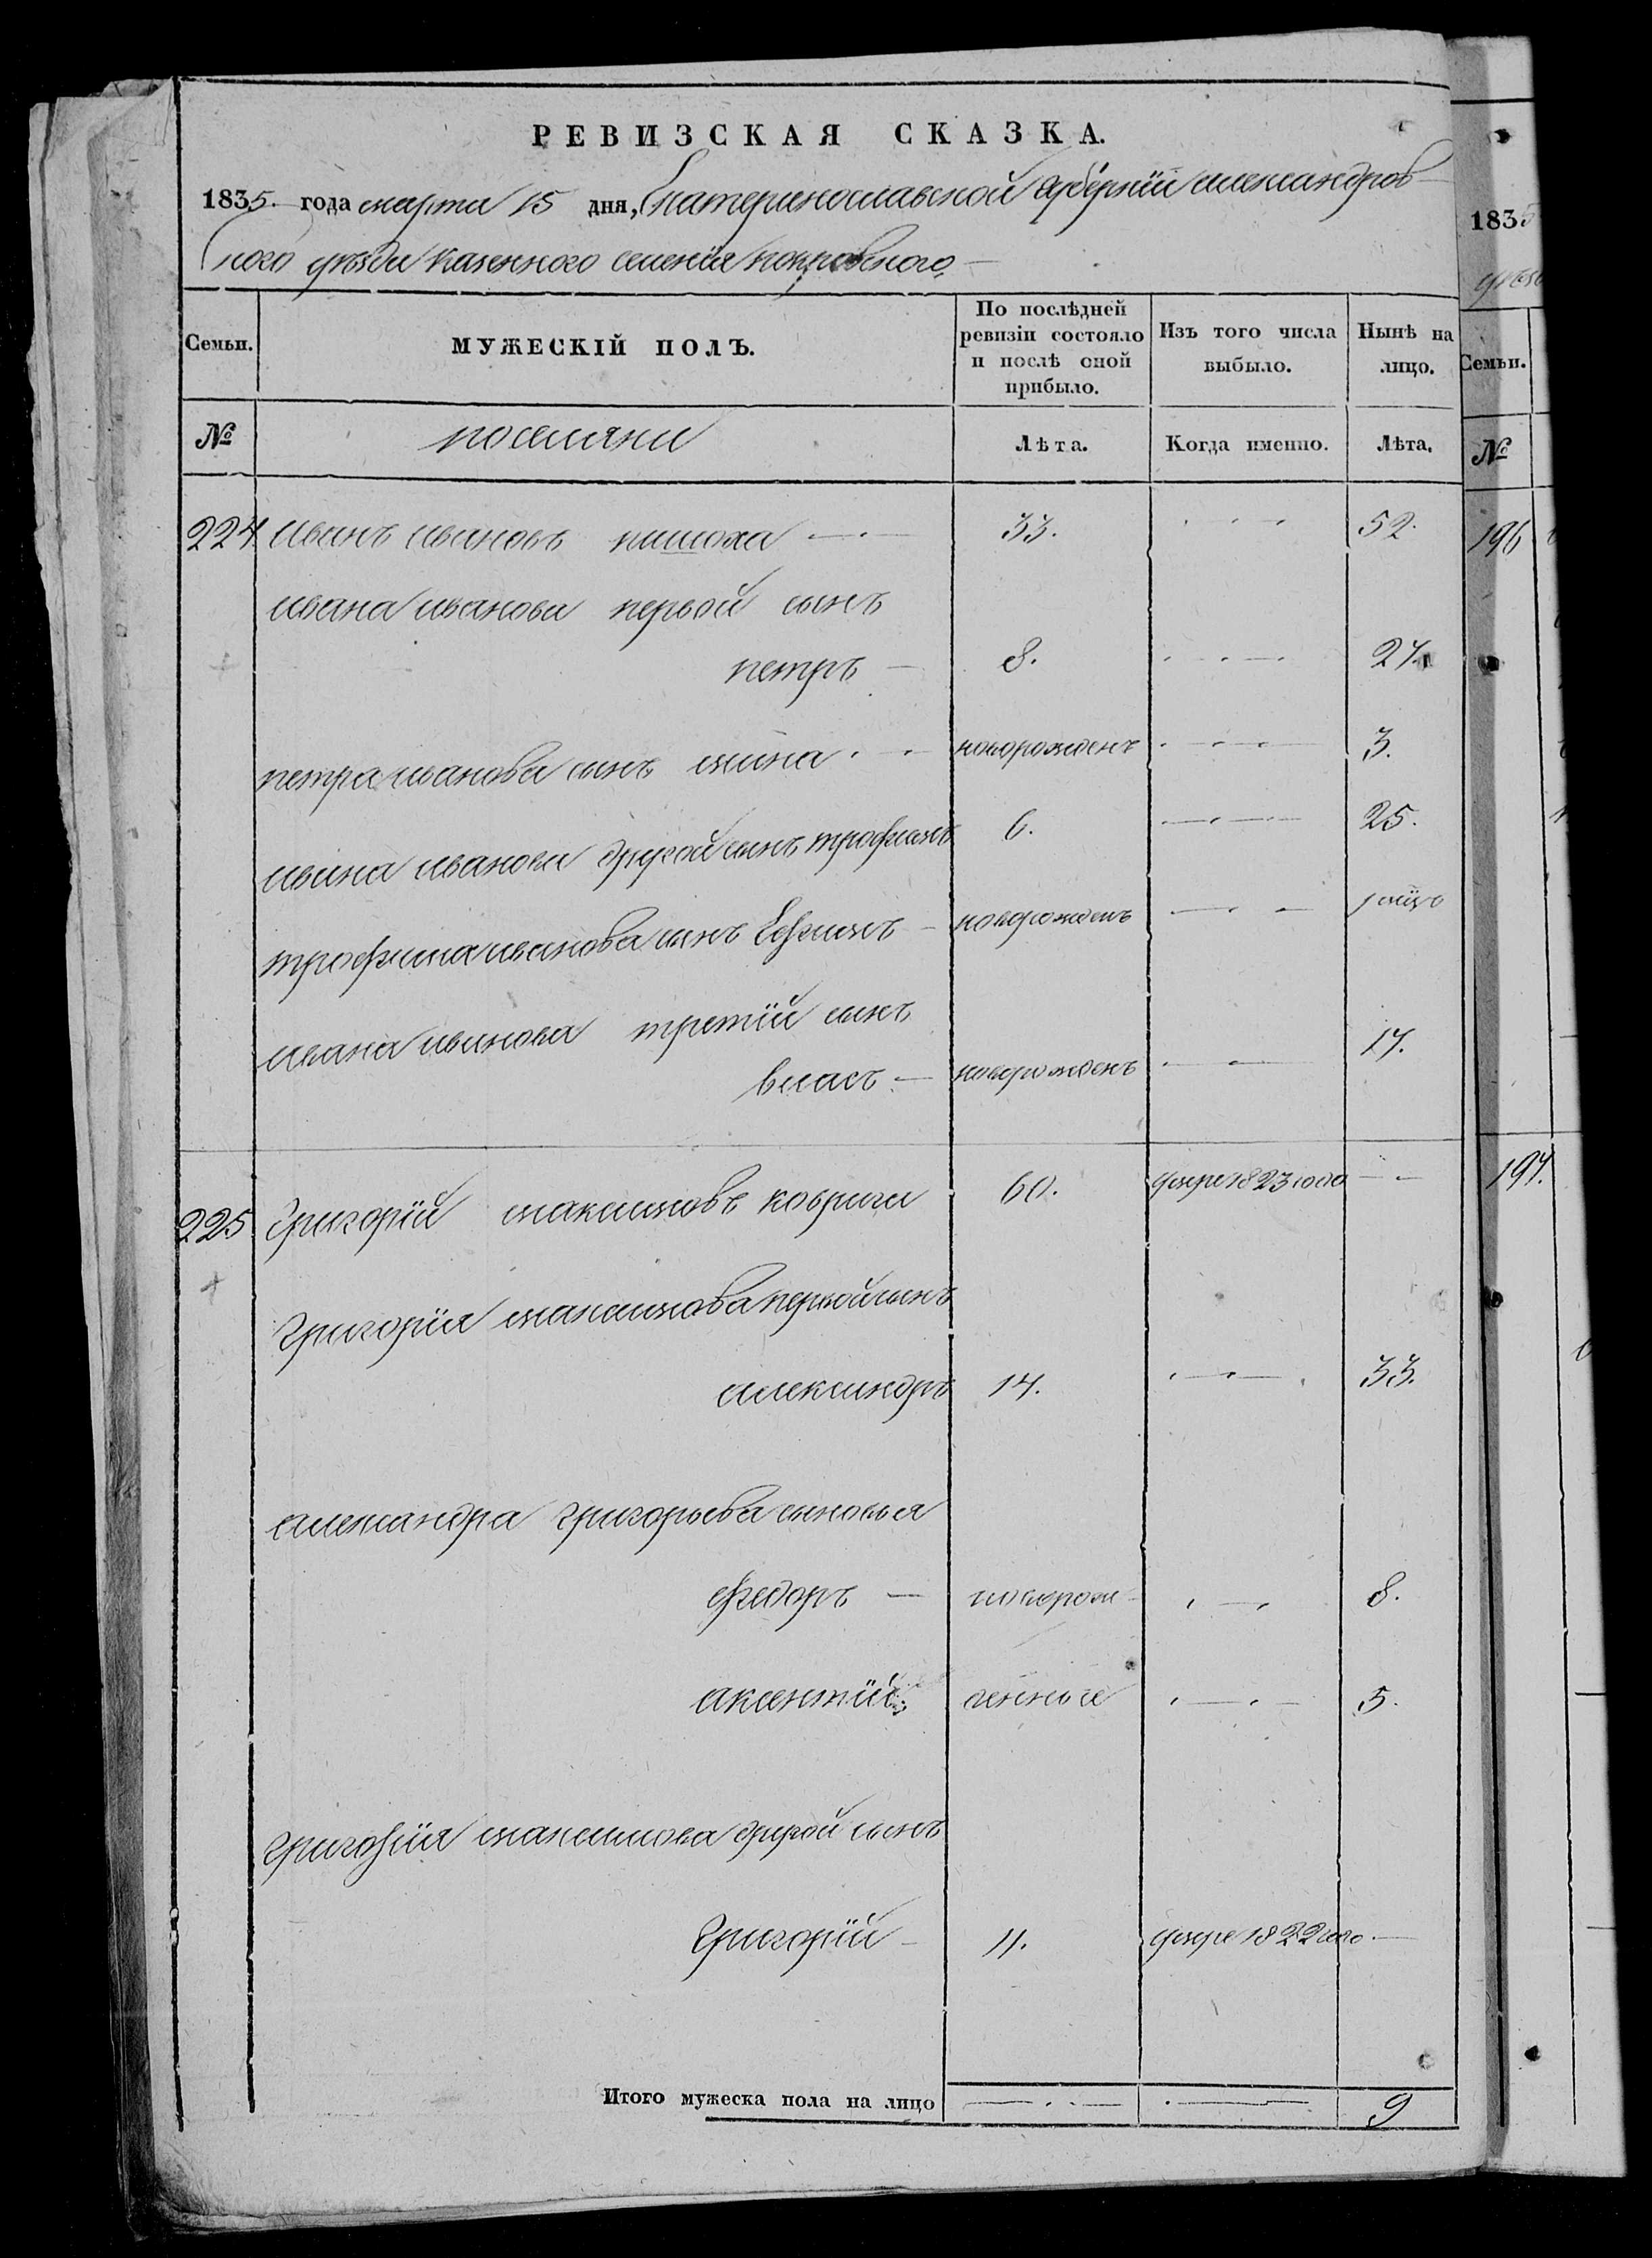 РЕВИЗСКАЯ СКАЗКА.
1835. года марта 15 дня, Екатеринославской губернии александров-
ского уезда казенного селения покровского
Семьи.
МУЖЕСКІЙ ПОЛЪ.
По послѣдней ревизіи состояло и послѣ оной прибыло.
Изъ того числа выбыло.
Нынѣ на лицо.
№
поселяни
Лѣта.
Когда именно.
Лѣта.
224 иванъ ивановъ 33. 52.
ивана иванова первой сынъ
петръ 8. 27.
петра иванова сынъ новорожденъ 3.
ивана иванова другой сынъ трофимъ 6. 25.
трофима иванова сынъ Ефимъ новорожденъ
ивана иванова третий сынъ
власъ новорожденъ 17.
225 григорий максимовъ коврига 60. умре 1823 года
григория максимова первой сынъ
александръ 14. 33.
александра григорьева сыновья
федоръ новорож- 8.
аксентий денные 5.
григория максимова другой сынъ
григорий 11. умре 1822 года
Итого мужеска пола на лицо 9
1835
Семьи.
№
196
197.